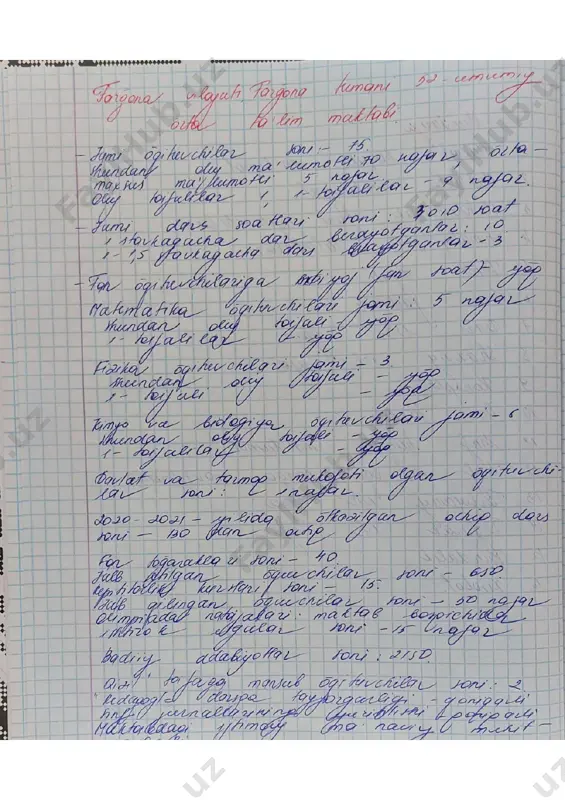 Farg'ona viloyati Farg'ona tumani 52-umumiy
orta ta'lim maktabi.
- Jami o'qituvchilar soni - 75.
shundan oliy ma'lumotli 70 nafar, orta-
maxsus ma'lumotli 5 nafar.
Oliy toifalilar 1, 1-toifalilar 9 nafar.
- Jami dars soatlari soni: 3010 soat
1 stavkagacha dars berayotganlar: 10
1-1,5 stavkagacha dars berayotganlar - 3
- Fan o'qituvchilariga extiyoj (fan soat) - yo'q
Matematika o'qituvchilari jami: 5 nafar
shundan oliy toifali - yo'q
1-toifalilar - yo'q
Fizika o'qituvchilari jami - 3.
shundan oliy toifali - yo'q
1-toifali - yo'q
Kimyo va biologiya o'qituvchilari jami - 6
shundan oliy toifali - yo'q
1-toifalilar - yo'q
Davlat va tarmoq mukofoti olgan o'qituvchi-
lar soni: 1 nafar.
2020-2021-yilida o'tkazilgan ochiq dars
soni - 130 dan ortiq
Fan to'garaklari soni - 40
Jalb etilgan o'quvchilar soni - 650
Repititorlik kurslari soni - 15
Jalb qilingan o'quvchilar soni - 50 nafar
Olimpiadat natijalari: maktab bosqichida
ishtirok soni - 15 nafar
Badiiy adabiyotlar soni: 2150.
toifaga mansub o'qituvchilar soni: 2
Pedagogik darsga tayyorgarligi qoniqarli
sinf jurnallarining yuritilishi qoniqarli
Maktabdagi ijtimoiy ma'naviy muhit -
FaylHub.uz
FaylHub.uz
FaylHub.uz
uz
uz